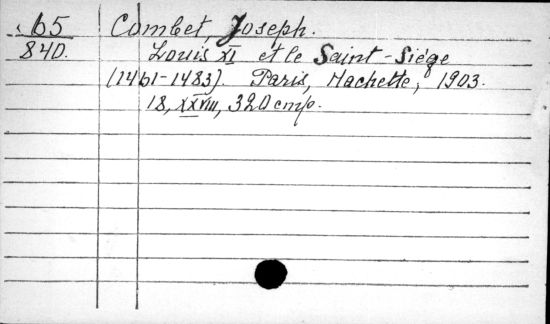 65 Combet, Joseph.
840. Louis XI et le Saint-Siége
(1461-1483). Paris, Hachette, 1903.
18, XXVIII, 320